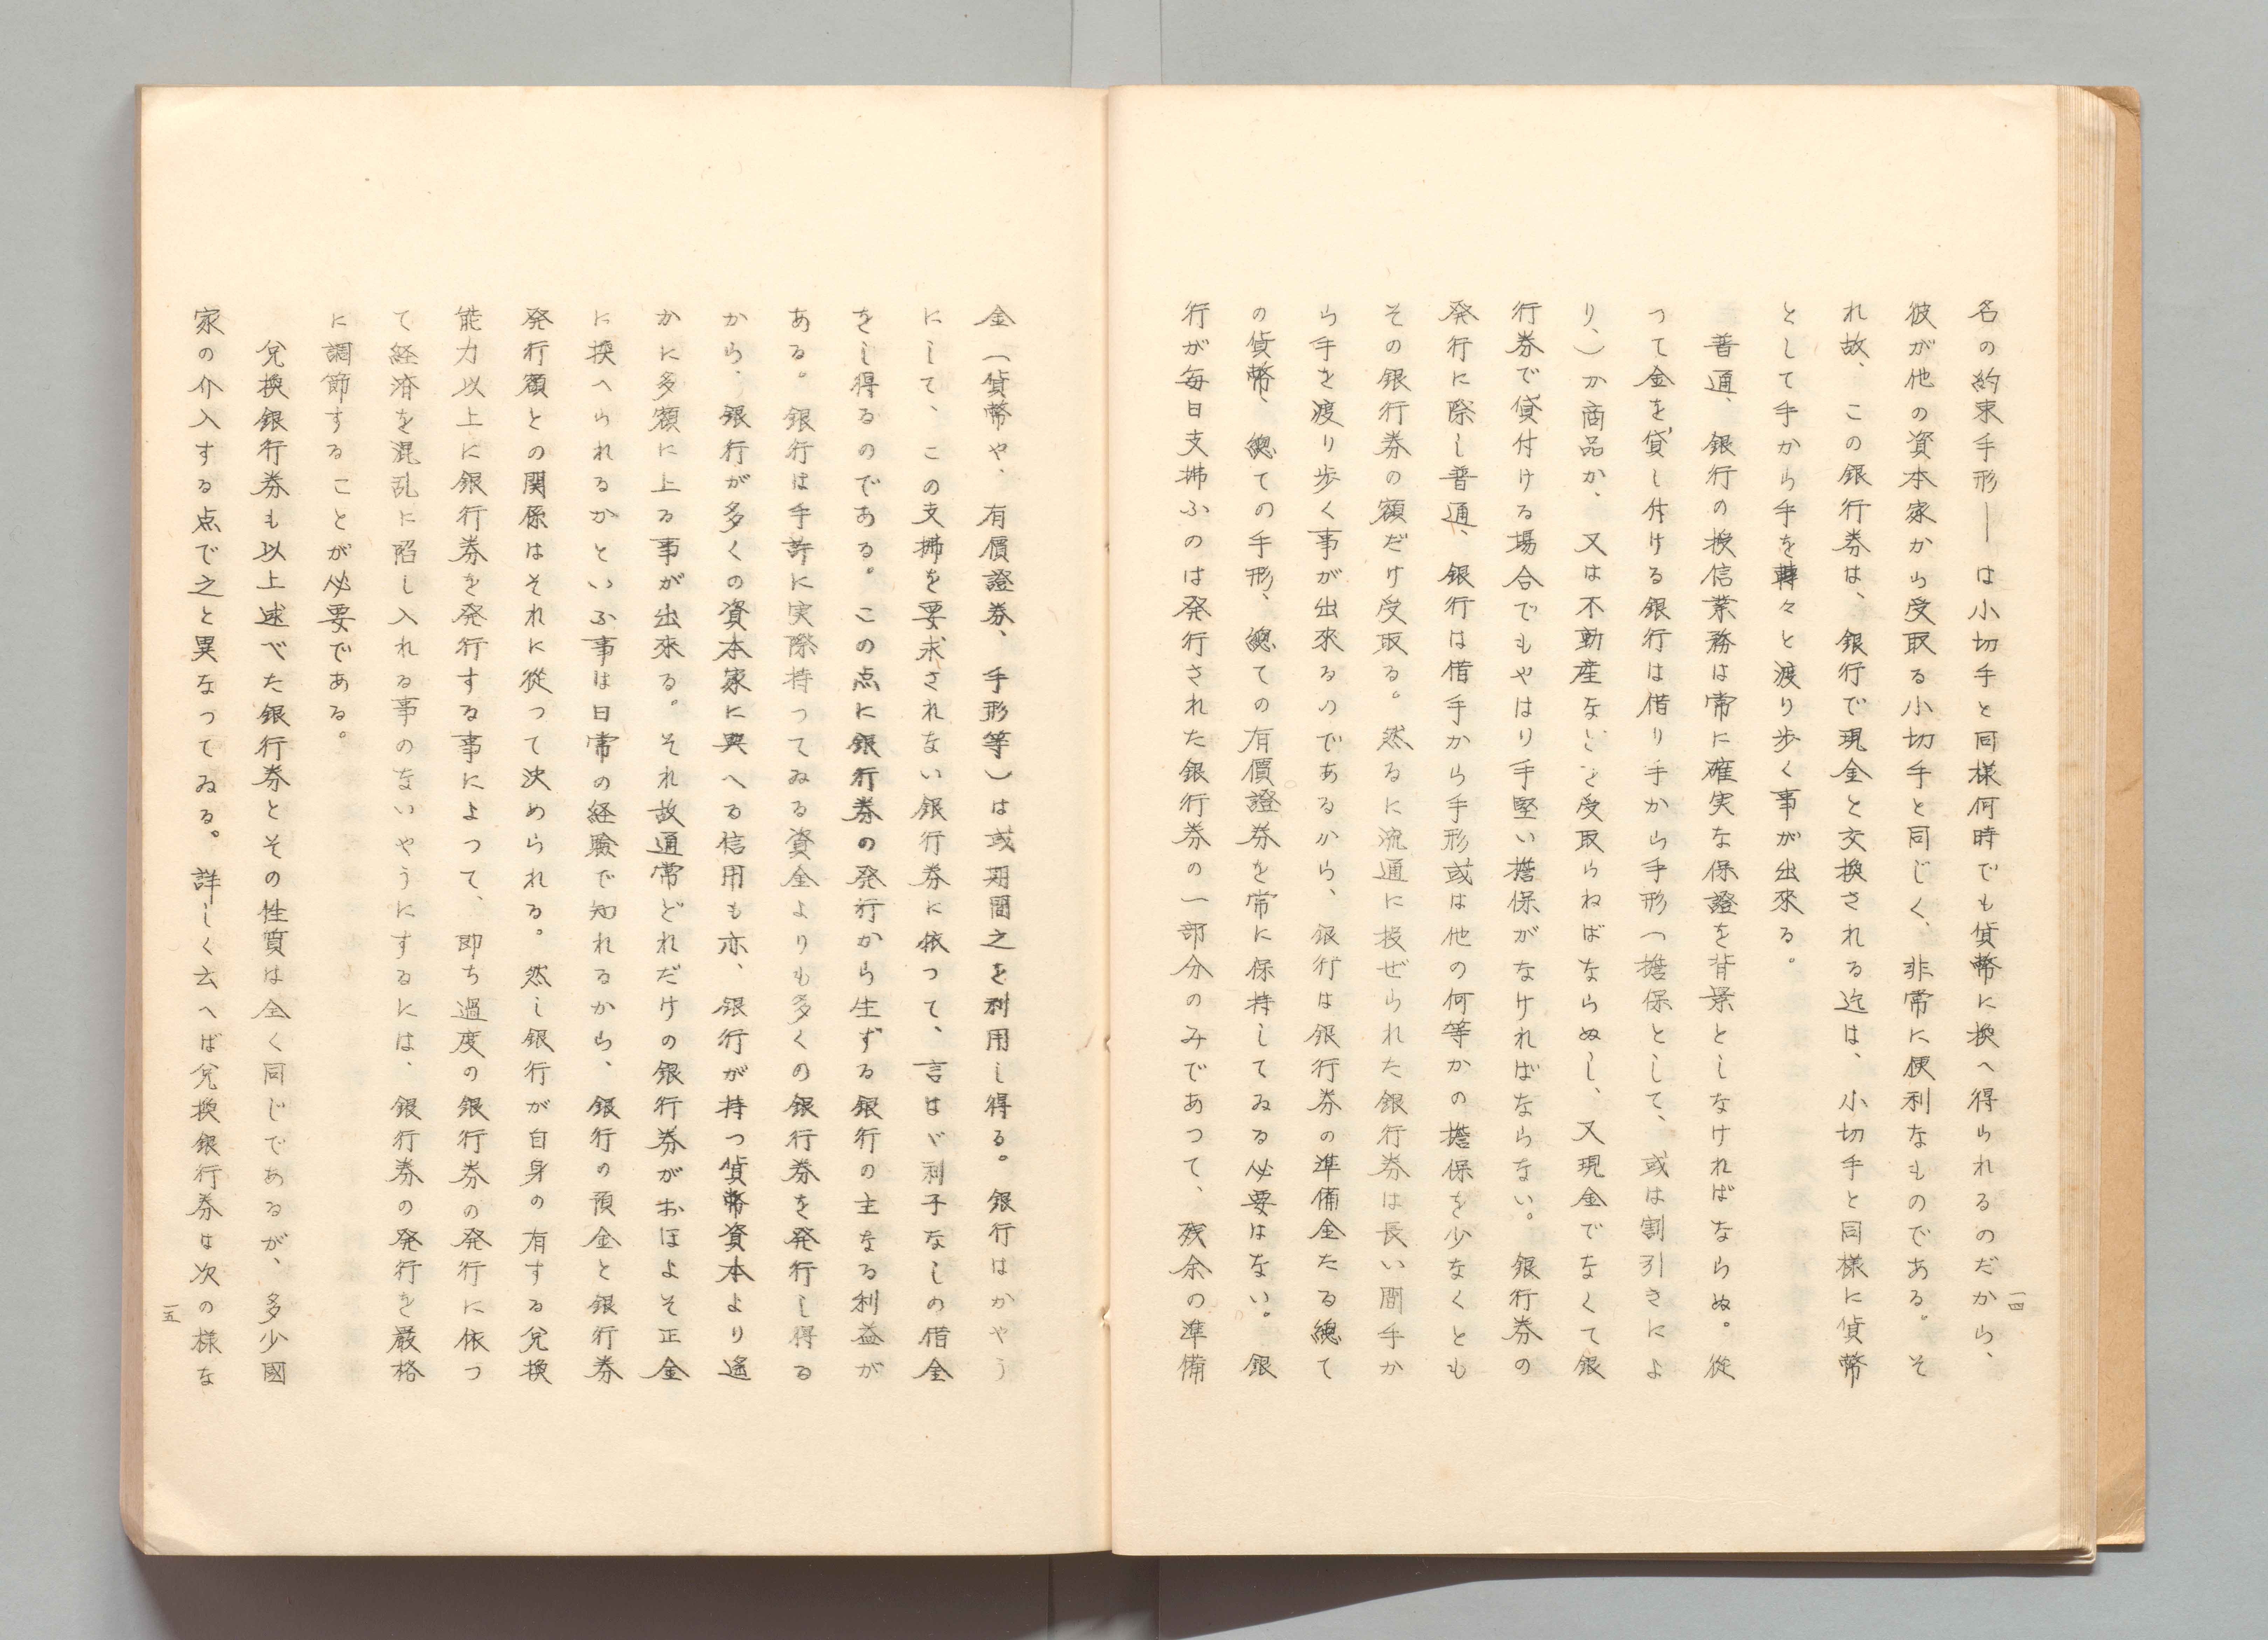 名の約束手形——は小切手と同様何時でも貨幣に換へ得られるのだから、
彼が他の資本家から受取る小切手と同じく、非常に便利なものである。そ
れ故、この銀行券は、銀行で現金と交換される迄は、小切手と同様に貨幣
として手から手を轉々と渡り歩く事が出來る。
普通、銀行の授信業務は常に確実な保證を背景としなければならぬ。從
つて金を貸し付ける銀行は借り手から手形（擔保として、或は割引きによ
り、）か商品か、又は不動産などを受取らねばならぬし、又現金でなくて銀
行券で貸付ける場合でもやはり手堅い擔保がなければならない。銀行券の
発行に際し普通、銀行は借手から手形或は他の何等かの擔保を少なくとも
その銀行券の額だけ受取る。然るに流通に投ぜられた銀行券は長い間手か
ら手を渡り歩く事が出來るのであるから、銀行は銀行券の準備金たる總て
の貨幣、總ての手形、總ての有價證券を常に保持してゐる必要はない。銀
行が毎日支拂ふのは発行された銀行券の一部分のみであつて、残余の準備
一四
金（貨幣や、有價證券、手形等）は或期間之を利用し得る。銀行はかやう
にして、この支拂を要求されない銀行券に依つて、言はゞ利子なしの借金
をし得るのである。この点に銀行券の発行から生ずる銀行の主なる利益が
ある。銀行は手許に実際持つてゐる資金よりも多くの銀行券を発行し得る
から、銀行が多くの資本家に與へる信用も亦、銀行が持つ貨幣資本より遙
かに多額に上る事が出來る。それ故通常どれだけの銀行券がおほよそ正金
に換へられるかといふ事は日常の経驗で知れるから、銀行の預金と銀行券
発行額との関係はそれに從つて決められる。然し銀行が自身の有する兌換
能力以上に銀行券を発行する事によつて、即ち過度の銀行券の発行に依つ
て経済を混乱に陷し入れる事のないやうにするには、銀行券の発行を嚴格
に調節することが必要である。
兌換銀行券も以上述べた銀行券とその性質は全く同じであるが、多少國
家の介入する点で之と異なつてゐる。詳しく云へば兌換銀行券は次の様な
一五